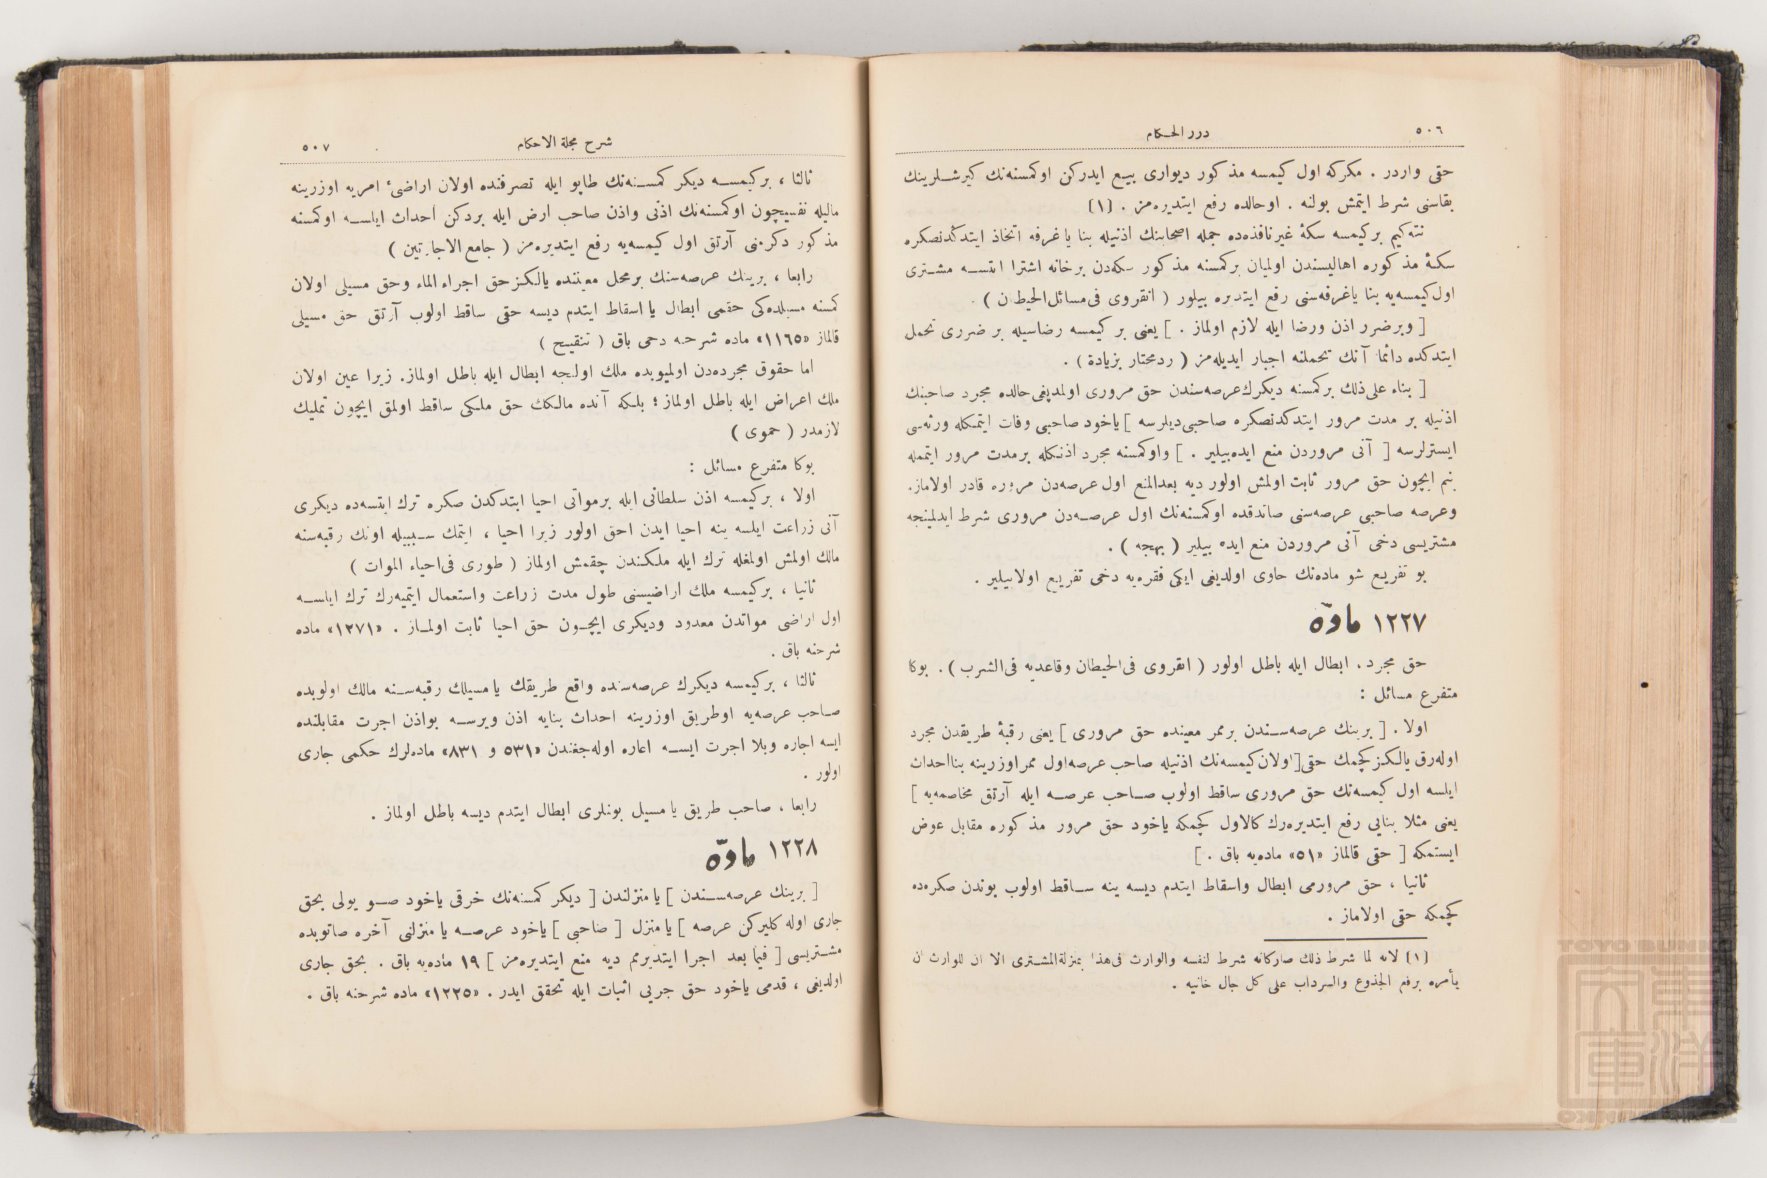 ٥٠٦
درر الحكام
حقی واردر . مكركه اول كيمسه مذكور ديواری بيع ايدركن اوكمسنه‌نك كيرشلرينك
بقاسنی شرط ايتمش بولنه . اوحالده رفع ايتديره‌مز . (١)
نته‌كيم بركيمسه سكهٔ غيرنافذه‌ده جمله اصحابنك اذنيله بنا ياغرفه اتخاذ ايتدكدنصكره
سكهٔ مذكوره اهاليسندن اولميان بركمسنه مذكور سكه‌دن برخانه اشترا ايتسه مشتری
اول كيمسه‌يه بنا ياغرفه‌سنی رفع ايتديره بيلور ( انقروی فی مسائل الحيطان ) .
[ وبرضرر اذن ورضا ايله لازم اولماز . ] يعنی بر كيمسه رضاسيله بر ضرری تحمل
ايتدكده دائما آنك تحملنه اجبار ايديله‌مز ( ردمحتار بزيادة ) .
[ بناء علی ذلك بركمسنه ديكرك عرصه‌سندن حق مروری اولمديغی حالده مجرد صاحبنك
اذنيله بر مدت مرور ايتدكدنصكره صاحبی ديلرسه ] ياخود صاحبی وفات ايتمكله ورثه‌سی
ايسترلرسه [ آنی مروردن منع ايده‌بيلير . ] واوكمسنه مجرد اذنكله برمدت مرور ايتممله
بنم ايچون حق مرور ثابت اولمش اولور ديه بعدالمنع اول عرصه‌دن مروره قادر اولاماز.
وعرصه صاحبی عرصه‌سنی صاتدقده اوكمسنه‌نك اول عرصه‌دن مروری شرط ايدلمينجه
مشتريسی دخی آنی مروردن منع ايده بيلير ( بهجه ) .
بو تفريع شو ماده‌نك حاوی اولديغی ايكی فقره‌يه دخی تفريع اولابيلير .
١٢٢٧ مادّه
حق مجرد ، ابطال ايله باطل اولور ( انقروی فی الحيطان وقاعديه فی الشرب ) . بوكا
متفرع مسائل :
اولا . [ برينك عرصه‌سندن برممر معينده حق مروری ] يعنی رقبهٔ طريقدن مجرد
اوله‌رق يالكز كچمك حقی [ اولان كيمسه‌نك اذنيله صاحب عرصه اول ممر اوزرينه بنا احداث
ايلسه اول كيمسه‌نك حق مروری ساقط اولوب صاحب عرصه ايله آرتق مخاصمه‌يه ]
يعنی مثلا بنايی رفع ايتديره‌رك كالاول كچمكه ياخود حق مرور مذكوره مقابل عوض
ايستمكه [ حقی قالماز «٥١» ماده‌يه باق . ]
ثانيا ، حق مرورمی ابطال واسقاط ايتدم ديسه ينه ساقط اولوب بوندن صكره‌ده
كچمكه حقی اولاماز .
(١) لانه لما شرط ذلك صاركانه شرط لنفسه والوارث فی هذا بمنزلة المشتری الا ان للوارث ان
يأمره برفع الجذوع والسرداب علی كل حال خانيه .
شرح مجلة الاحكام
٥٠٧
ثالثا ، بركيمسه ديكر كمسنه‌نك طاپو ايله تصرفنده اولان اراضیٔ اميريه اوزرينه
ماليله نفسيچون اوكمسنه‌نك اذنی واذن صاحب ارض ايله بردكرمن احداث ايلسه اوكمسنه
مذكور دكرمنی آرتق اول كيمسه‌يه رفع ايتديره‌مز ( جامع الاجارتين )
رابعا ، برينك عرصه‌سنك برمحل معيننده يالكز حق اجراء الماء وحق مسيلی اولان
كمسنه مسيلده‌كی حقمی ابطال يا اسقاط ايتدم ديسه حقی ساقط اولوب آرتق حق مسيلی
قالماز «١١٦٥» ماده شرحنه دخی باق ( تنقيح )
اما حقوق مجرده‌دن اولميوبده ملك اولنجه ابطال ايله باطل اولماز. زيرا عين اولان
ملك اعراض ايله باطل اولماز ؛ بلكه آنده مالكك حق ملكی ساقط اولمق ايچون تمليك
لازمدر ( حموی )
بوكا متفرع مسائل :
اولا ، بركيمسه اذن سلطانی ايله برمواتی احيا ايتدكدن صكره ترك ايتسه‌ده ديكری
آنی زراعت ايلسه ينه احيا ايدن احق اولور زيرا احيا ، ايتمك سببيله اونك رقبه‌سنه
مالك اولمش اولمغله ترك ايله ملكندن چقمش اولماز ( طوری فی احياء الموات )
ثانيا ، بركيمسه ملك اراضيسنی طول مدت زراعت واستعمال ايتميه‌رك ترك ايلسه
اول اراضی مواتدن معدود وديكری ايچون حق احيا ثابت اولماز . «١٢٧١» ماده
شرحنه باق .
ثالثا ، بركيمسه ديكرك عرصه‌سنده واقع طريقك يامسيلك رقبه‌سنه مالك اولوبده
صاحب عرصه‌يه اوطريق اوزرينه احداث بنايه اذن ويرسه بواذن اجرت مقابلنده
ايسه اجاره وبلا اجرت ايسه اعاره اوله‌جغندن «٥٣١ و ٨٣١» ماده‌لرك حكمی جاری
اولور .
رابعا ، صاحب طريق يا مسيل بونلری ابطال ايتدم ديسه باطل اولماز .
١٢٢٨ مادّه
[ برينك عرصه‌سندن ] يا منزلندن [ ديكر كمسنه‌نك خرقی ياخود صو يولی بحق
جاری اوله كليركن عرصه ] يا منزل [ صاحبی ] ياخود عرصه يا منزلی آخره صاتوبده
مشتريسی [ فيما بعد اجرا ايتديرمم ديه منع ايتديره‌مز ] ١٩ ماده‌يه باق . بحق جاری
اولديغی ، قدمی ياخود حق جريی اثبات ايله تحقق ايدر . «١٢٢٥» ماده شرحنه باق .
TOYO BUNKO